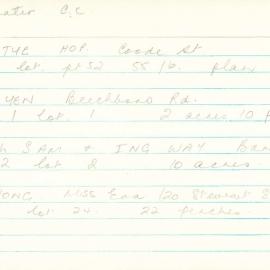 C.C.
HOP. Coode St.
lot. pt 52 55 plan
YEN Beechboro Rd.
1 lot. 1 2 acres 10 p
SAM + ING WAY
2 lot 2 10 acres
ONG Miss Eva 120 Stewart S
lot 24. 22 perches